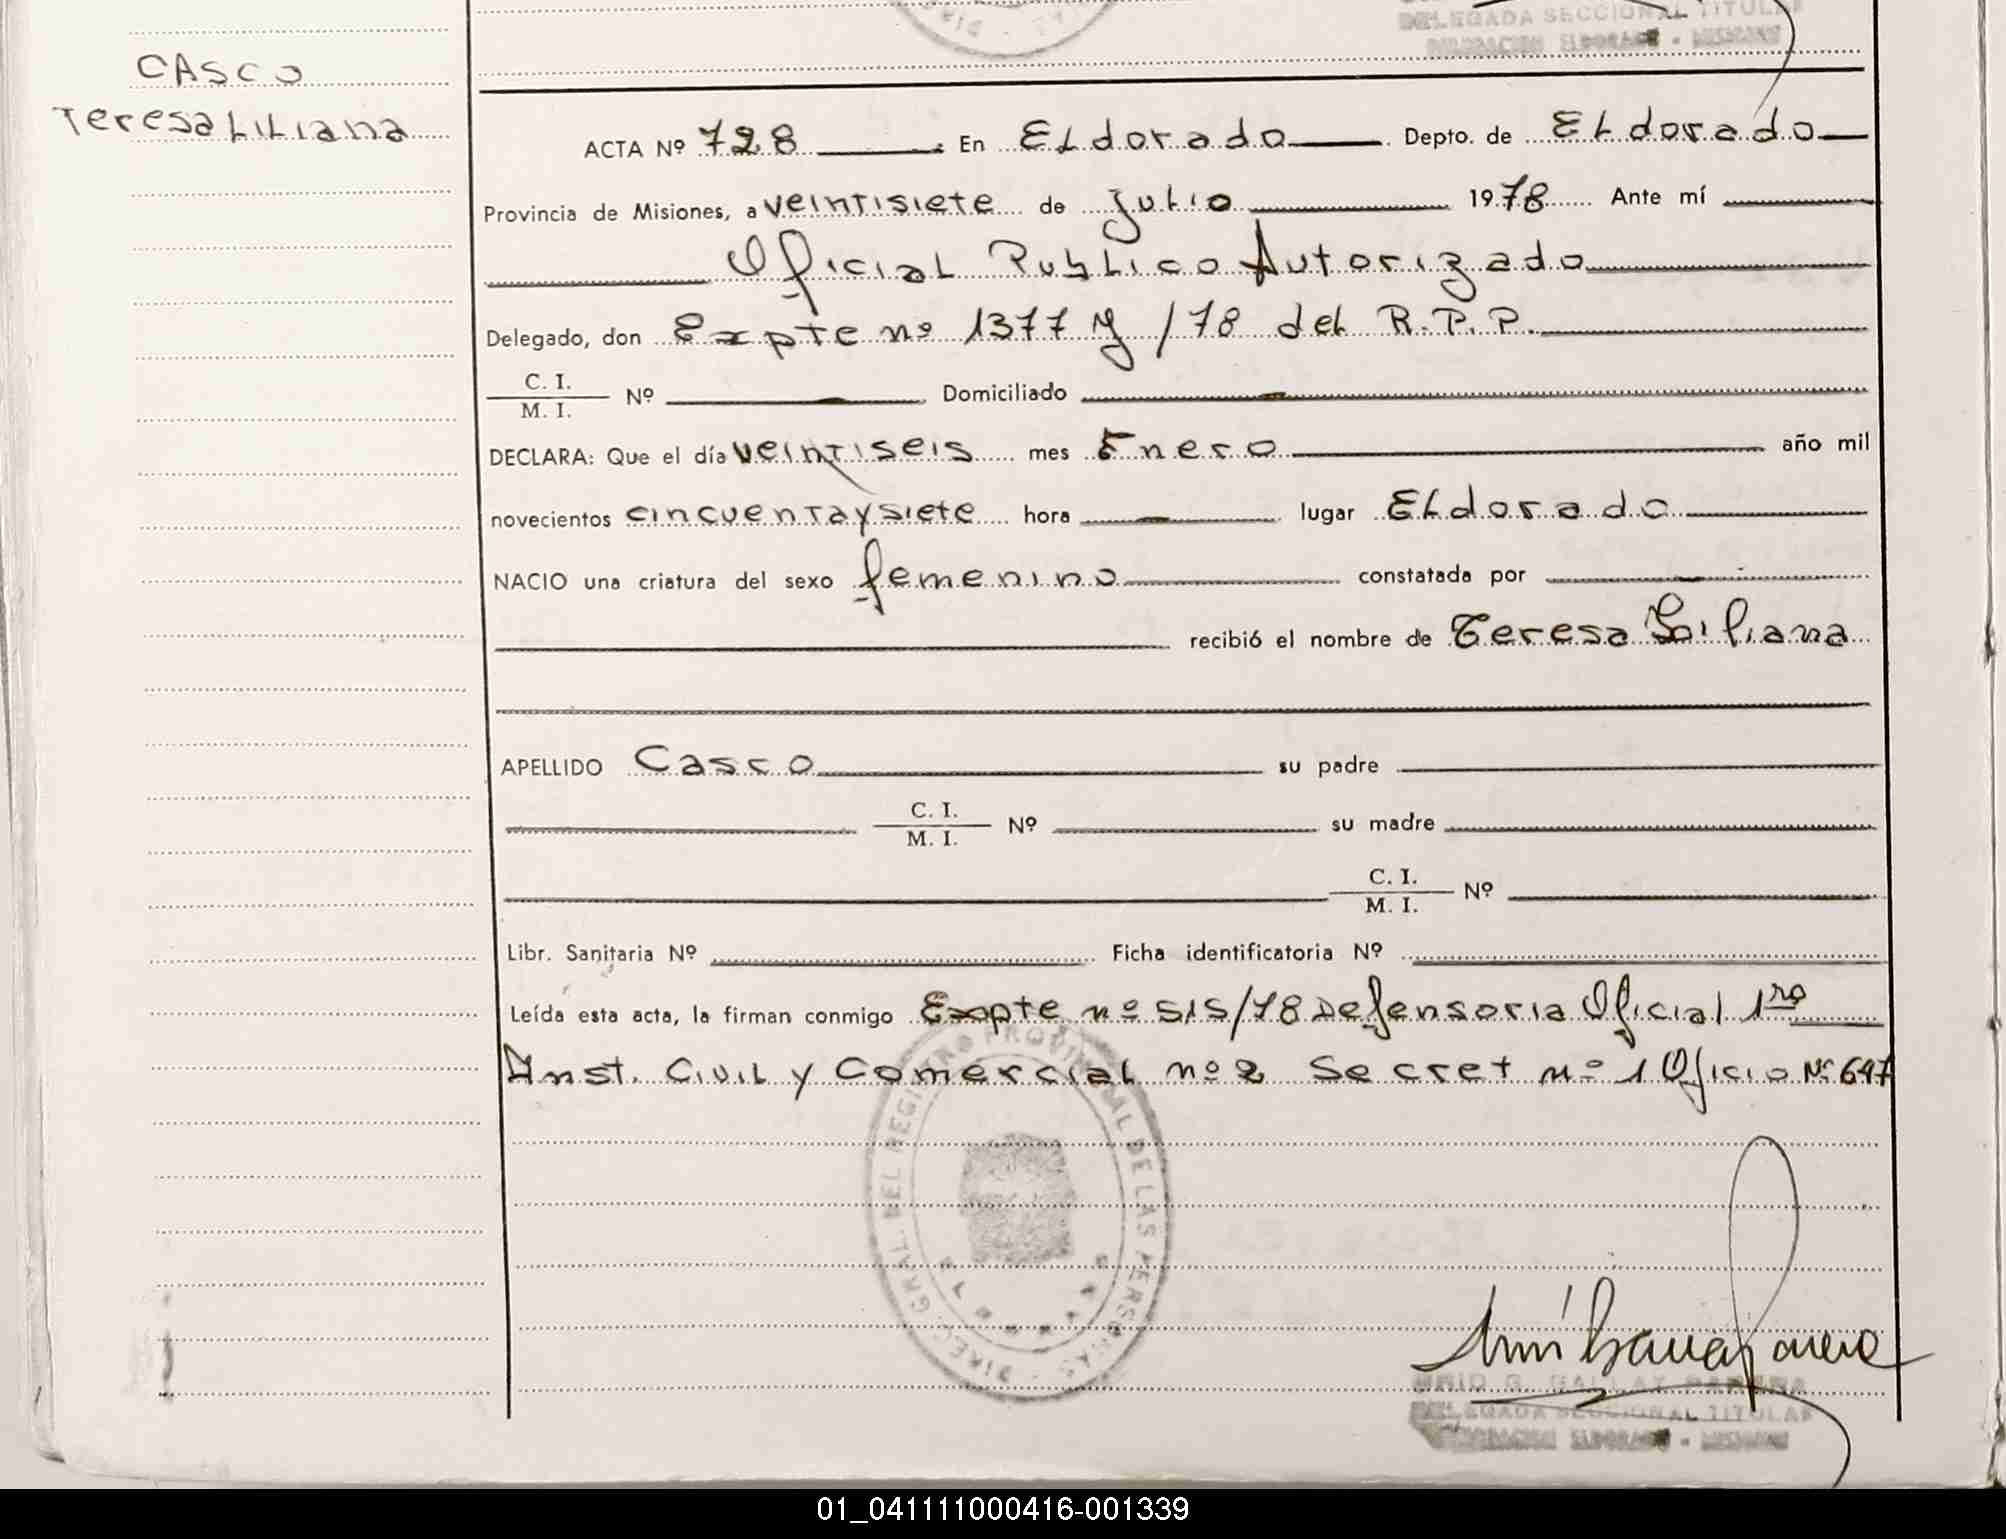 DELEGADA SECCIONAL TITULAR
DELEGACION ELDORADO - MISIONES
CASCO
Teresa Liliana
ACTA Nº 728 En Eldorado Depto. de Eldorado
Provincia de Misiones, a veintisiete de Julio 1978 Ante mí
Oficial Publico Autorizado
Delegado, don Expte nº 1377 Y/78 del R.P.P.
C. I.
M. I. Nº Domiciliado
DECLARA: Que el día veintiseis mes Enero año mil
novecientos cincuentaysiete hora lugar Eldorado
NACIO una criatura del sexo femenino constatada por
recibió el nombre de Teresa Liliana
APELLIDO Casco su padre
C. I.
M. I. Nº su madre
C. I.
M. I. Nº
Libr. Sanitaria Nº Ficha identificatoria Nº
Leída esta acta, la firman conmigo Expte nº 515/78 Defensoria Oficial 1ra
Inst. Civil y Comercial nº 2 Secret nº 1 Oficio Nº 697
DIREC. GRAL. DEL REGISTRO PROVINCIAL DE LAS PERSONAS
DELEGADA SECCIONAL TITULAR
DELEGACION ELDORADO - MISIONES
01_041111000416-001339